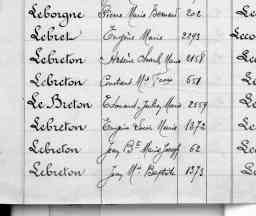 Leborgne Pierre Marie Bernard 202
Lebret Eugène Marie 2293
Lebreton Arsène Charles Marie 2158
Lebreton Constant Mie 651
Le Breton Edmond Jules Marie 2559
Lebreton Eugène Louis Marie 1372
Lebreton Jean Bte Marie Joseph 62
Lebreton Jean Mie Baptiste 1373